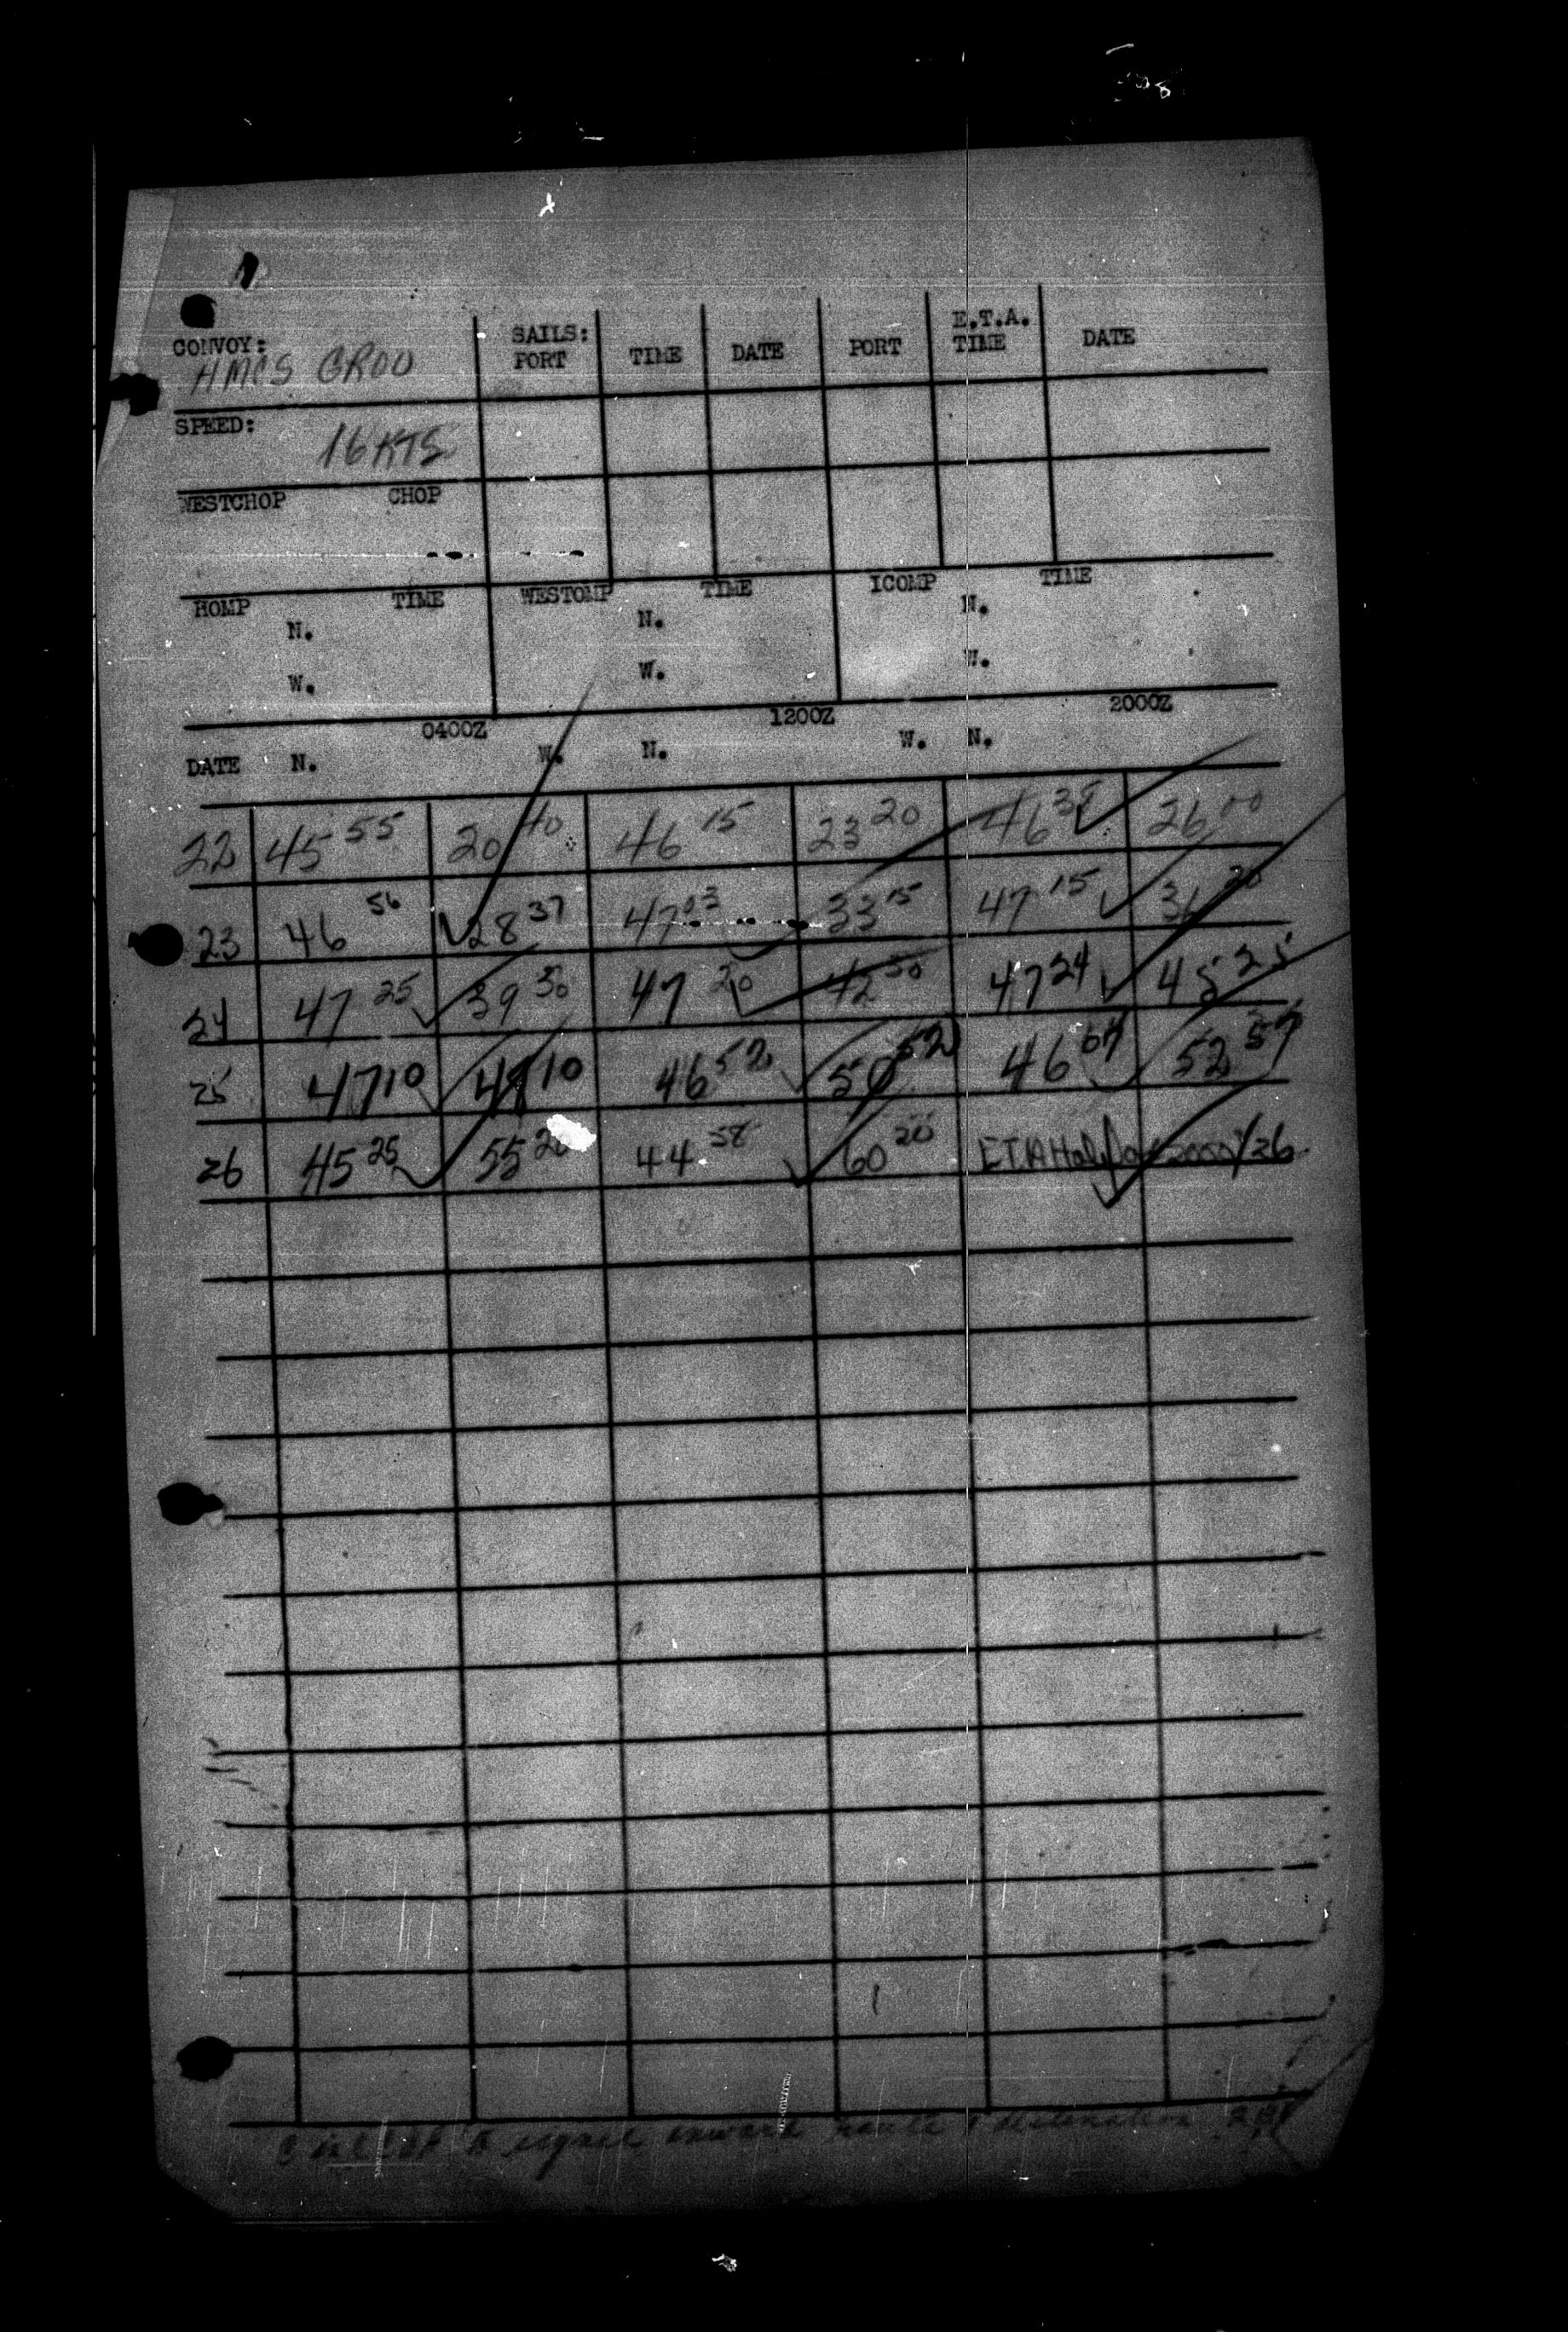 CONVOY: SAILS: PORT TIME DATE PORT E.T.A. TIME DATE
HMCS GROU
SPEED:
16 KTS
WESTCHOP CHOP
HOMP TIME WESTOMP TIME ICOMP TIME
N. N. N.
W. W. W.
0400Z 1200Z 2000Z
DATE N. W. N. W. N.
22 45 55 20 40 46 15 23 20 46 35 26 00
23 46 56 28 37 47 03 33 15 47 15 36 20
24 47 25 39 30 47 20 42 30 47 24 45 25
25 47 10 48 10 46 52 50 52 46 07 52 57
26 45 25 55 20 44 58 60 20 ETA Halifax 2000Z/26
to signal inward route & destination